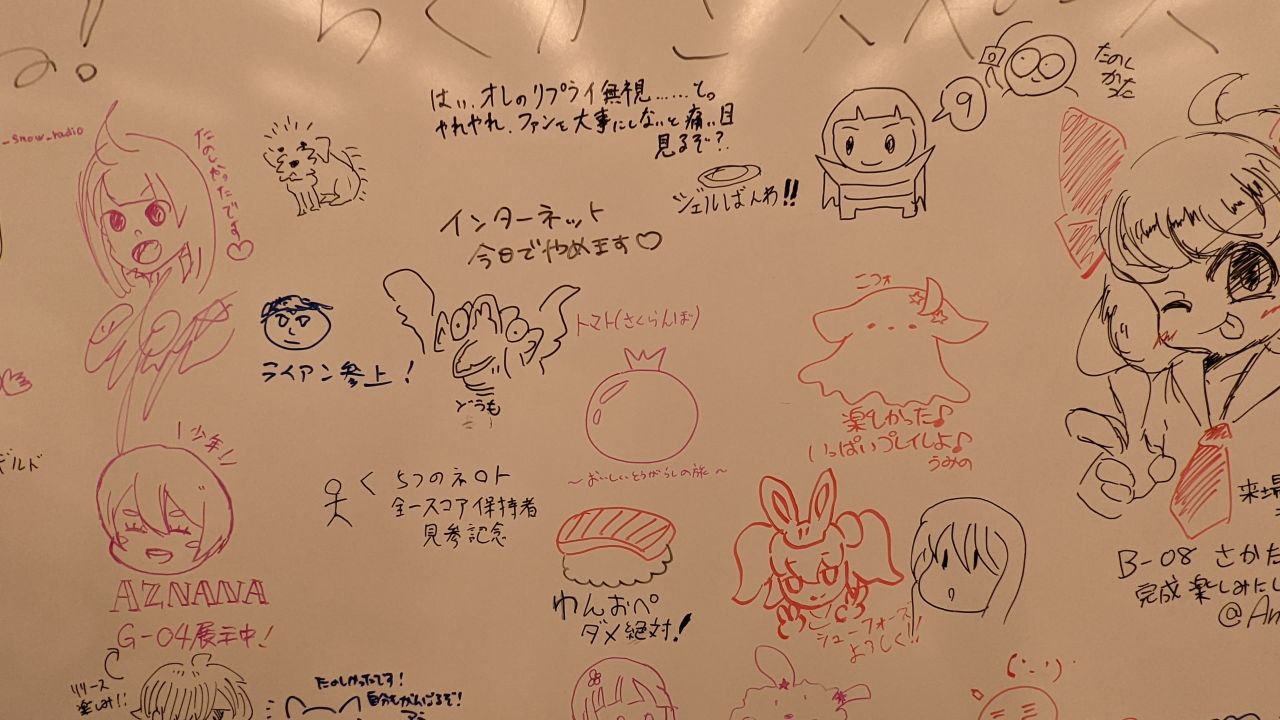 らくがきスペース
_snow_radio
たのしかったです♡
はい、オレのリプライ無視……と。
やれやれ、ファンを大事にしないと痛い目
見るぞ?
9
たのし
かった
ジェルばんわ!!
インターネット
今日でやめます♡
ライアン参上!
どうも
トマト(さくらんぼ)
~おいしいとうがらしの旅~
こフォ
楽しかった♪
いっぱいプレイしよ♪
うみの
少年
AZNANA
G-04展示中!
5つのネロト
全一スコア保持者
見参記念
わんおぺ
ダメ絶対!
シューフォーズ
よろしく!!
来場
B-08 さかた
完成楽しみに
@An
リリース
楽しみ!!
たのしかったです!
自分もがんばるぞ!